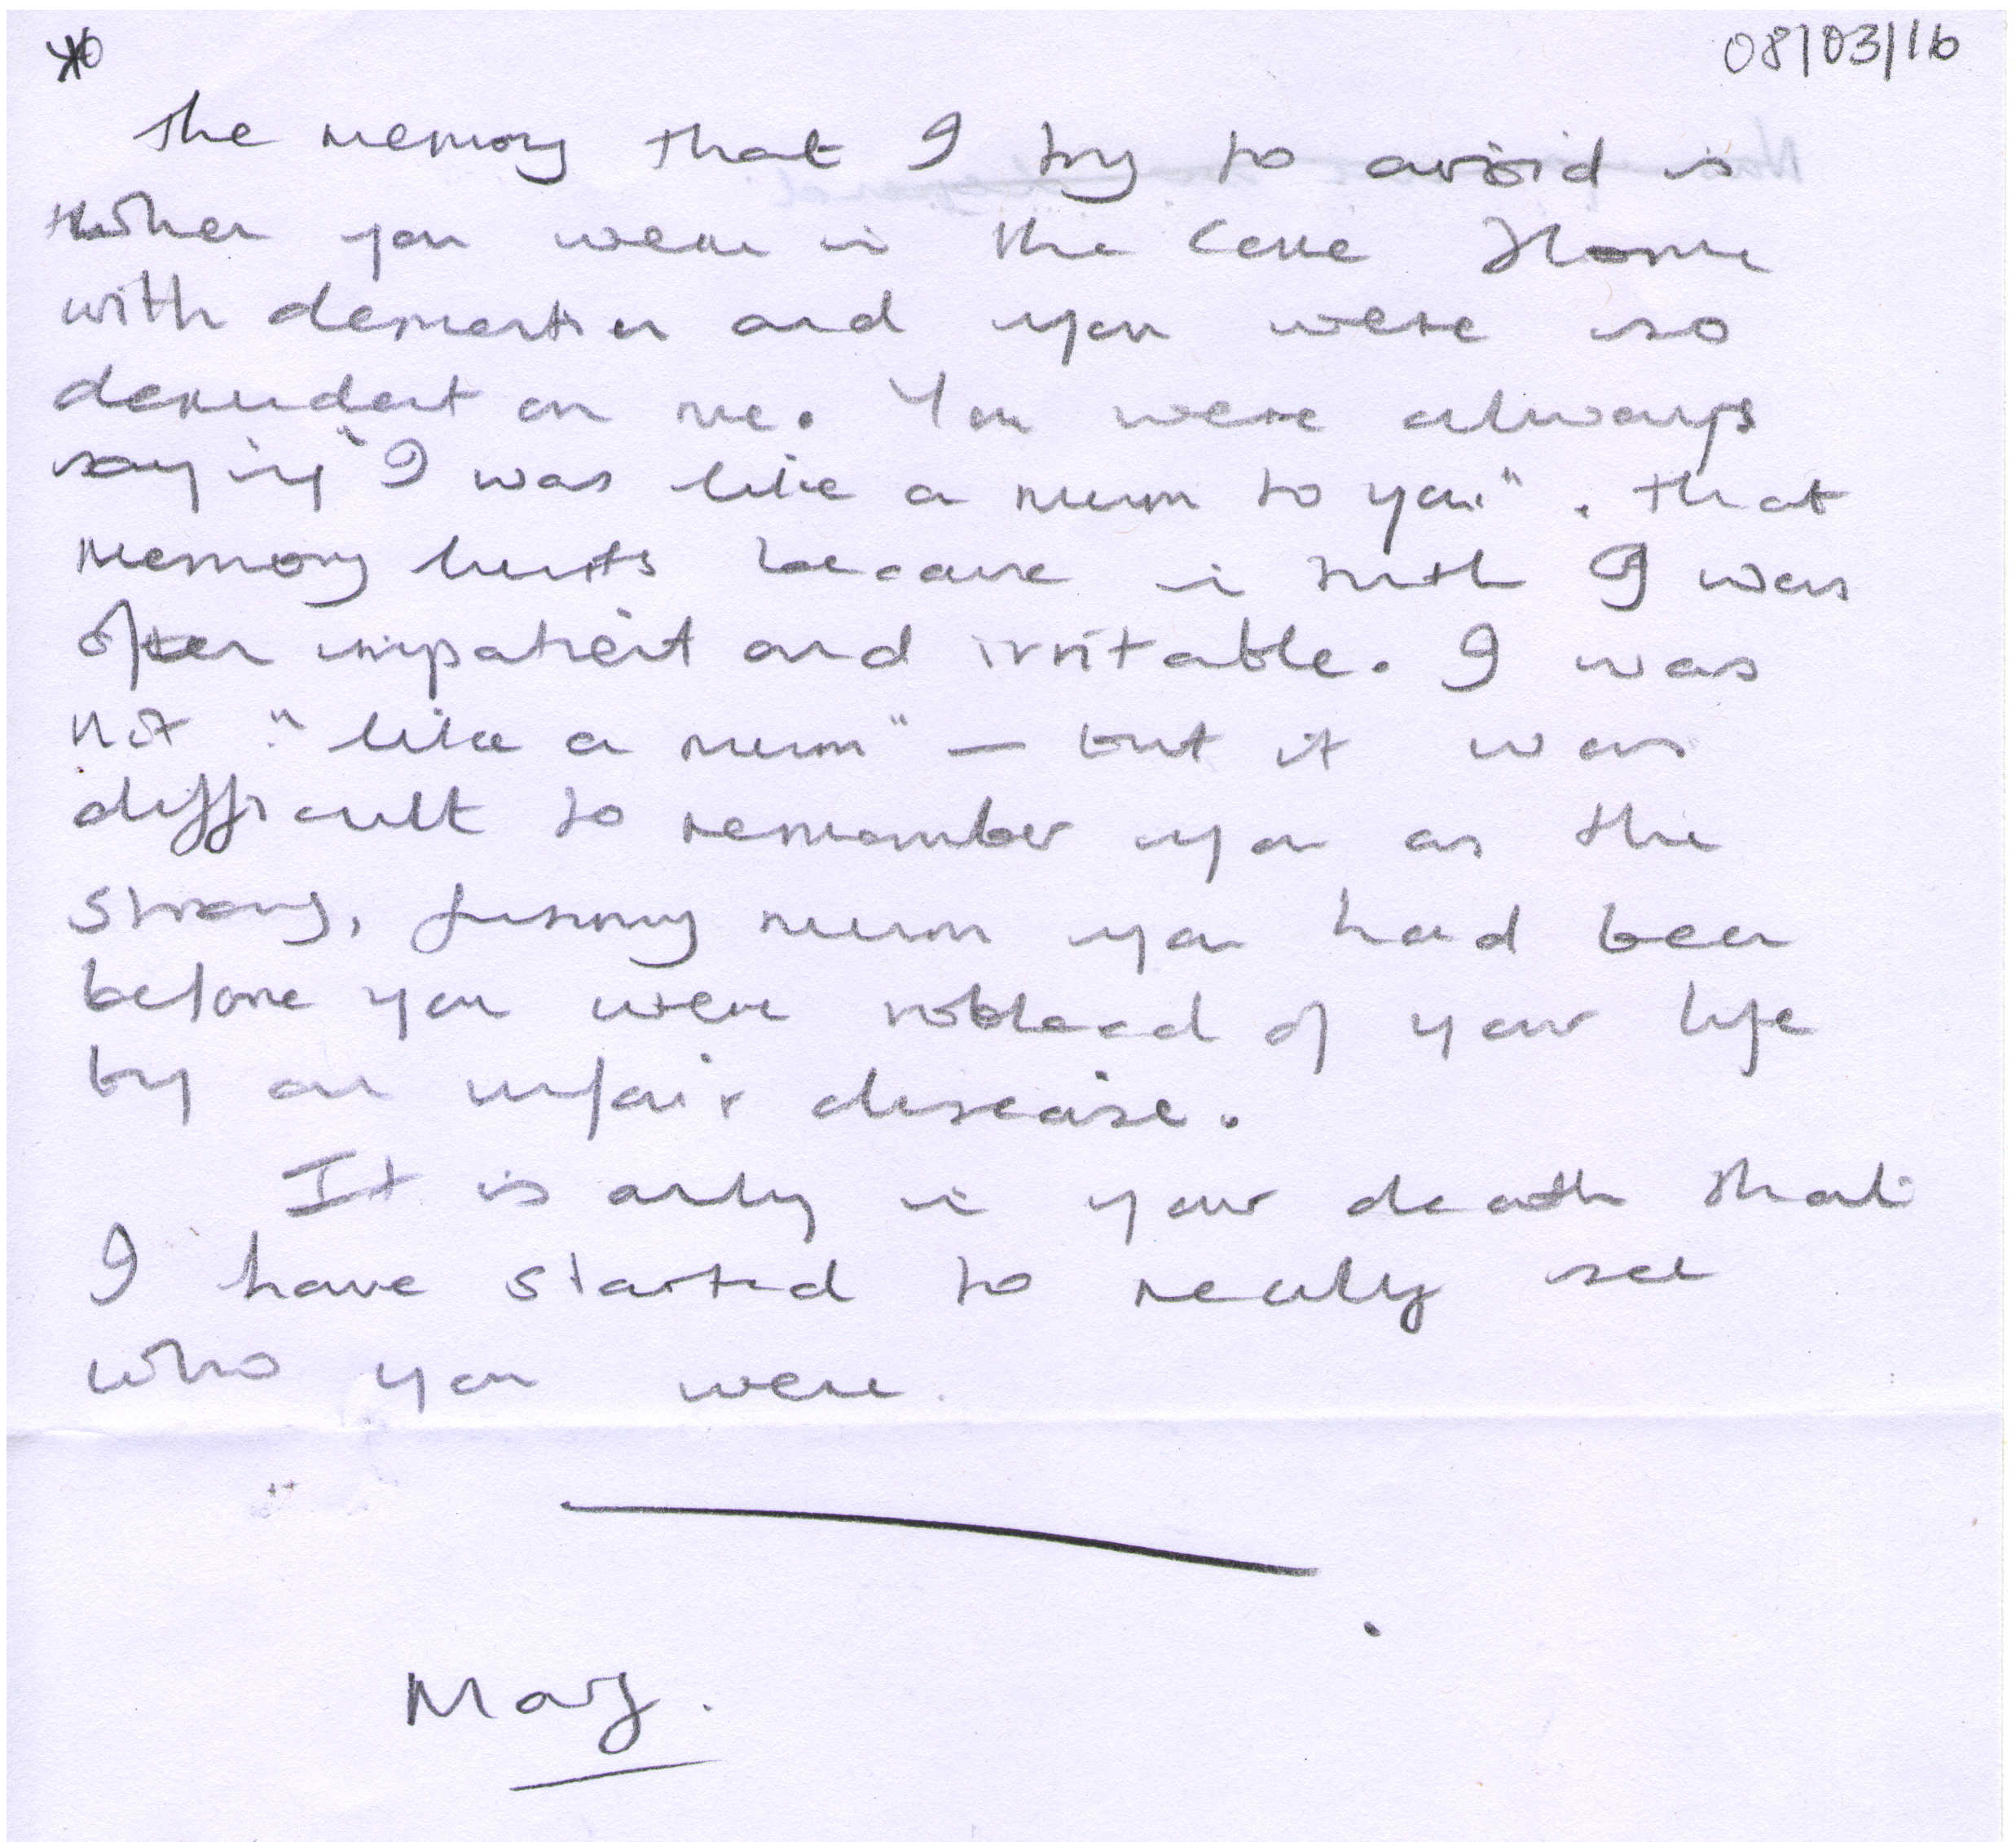 08/03/16
The memory that I try to avoid is
when you were in the Care Home
with dementia and you were so
dependent on me. You were always
saying "I was like a mum to you". That
memory hurts because in truth I was
often impatient and irritable. I was
not "like a mum" – but it was
difficult to remember you as the
strong, funny mum you had been
before you were robbed of your life
by an unfair disease.
It is only in your death that
I have started to really see
who you were.